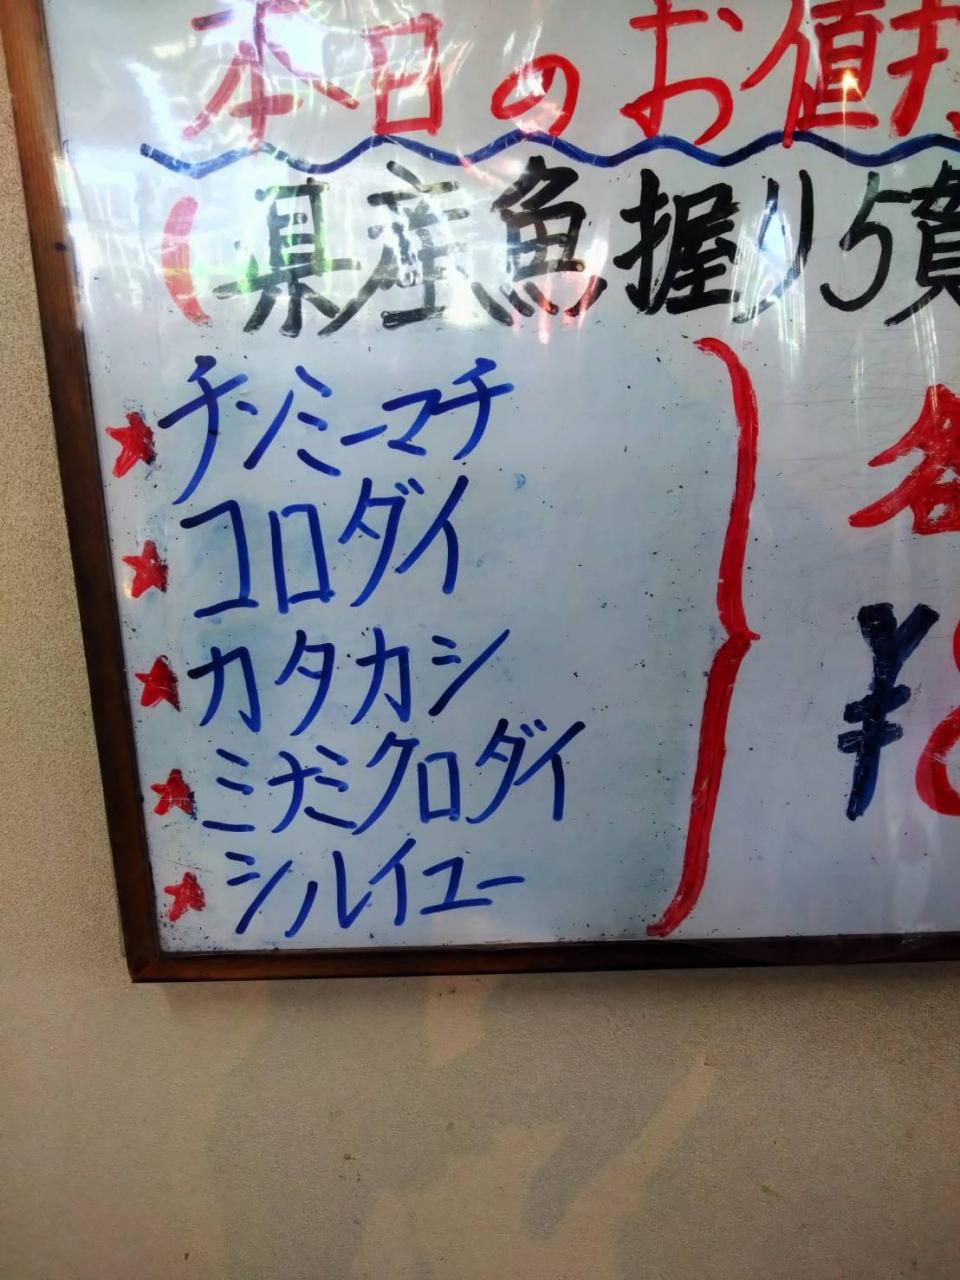 本日のお値打
(県産魚握り5貫
★チンミーマチ
★コロダイ
★カタカシ
★ミナミクロダイ
★シルイユー
各
¥8